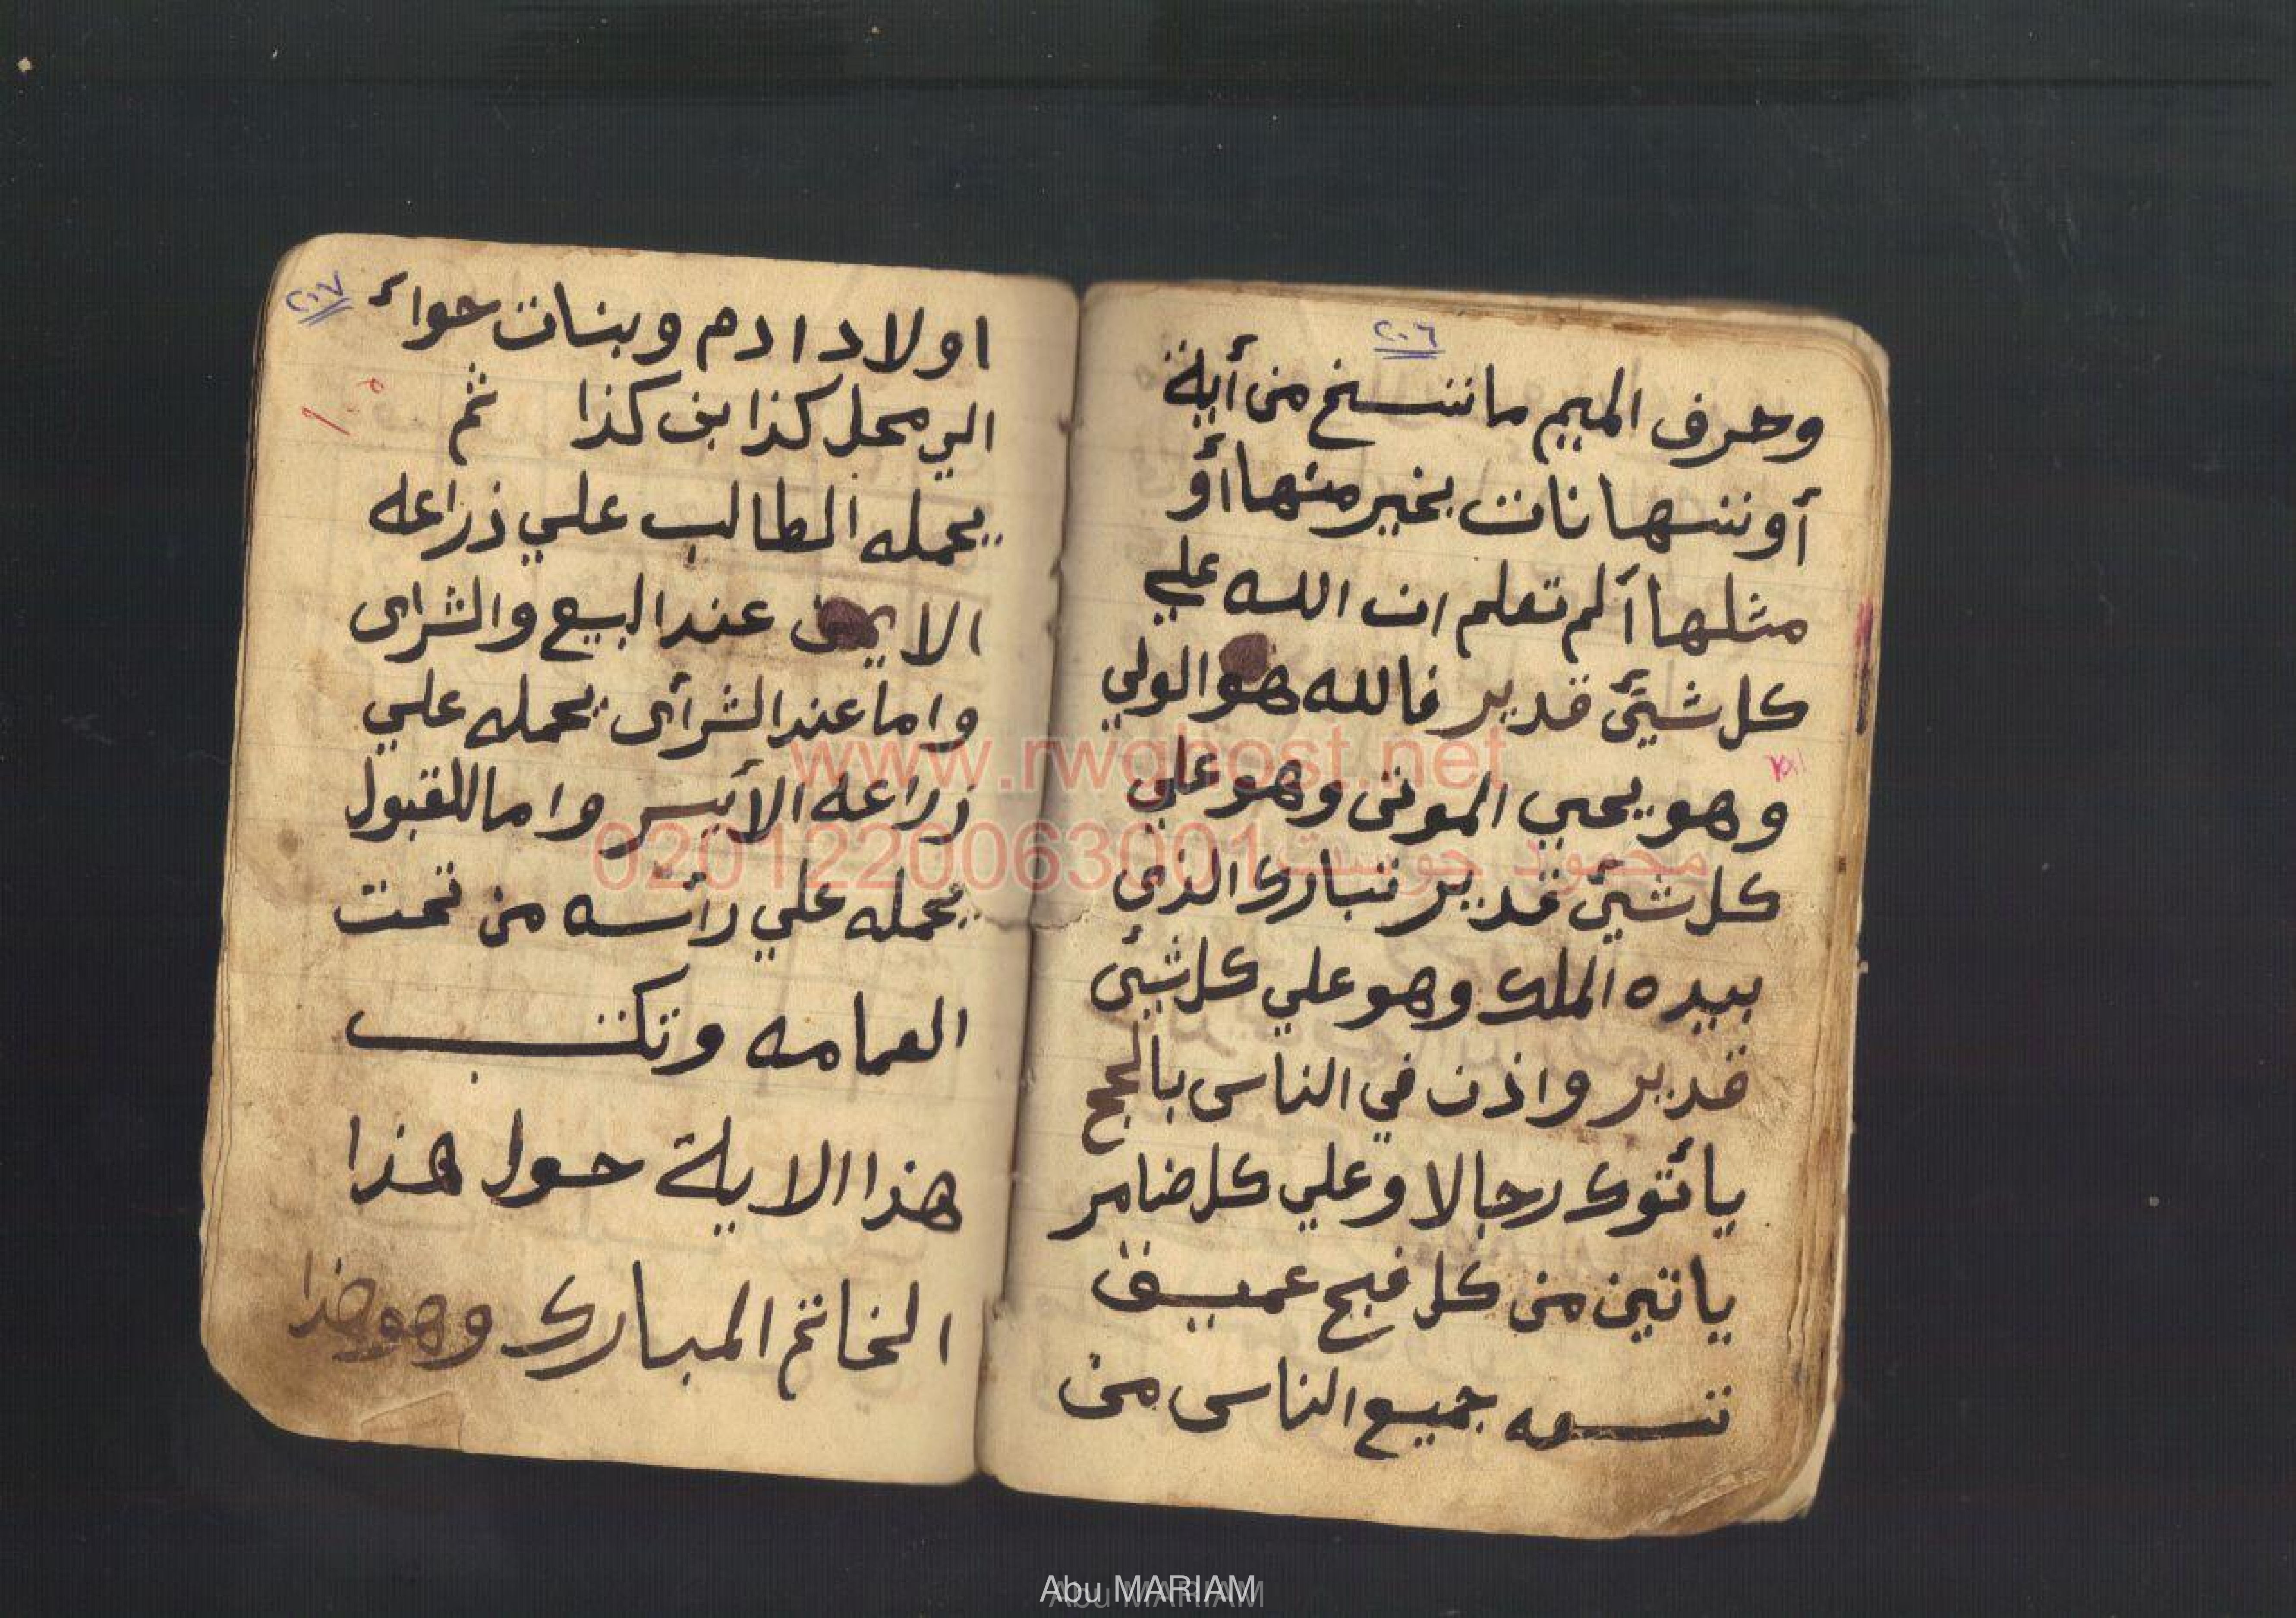 ٢٠٦
وحرف الميم ماننسخ من أية
أوننسها نات بخير منها أو
مثلها ألم تعلم ان الله علي
كل شيئ قدير فالله هو الولي
وهو يحيي الموتى وهو علي
كل شيئ قدير تبارك الذي
بيده الملك وهو علي كل شيئ
قدير واذن في الناس بالحج
يأتوك رجالا وعلي كل ضامر
ياتين من كل فج عميق
جميع الناس من
٢٠٧
اولاد ادم وبنات حوائ
الي محل كذا بن كذا ثم
يحمله الطالب علي ذراعه
الايمن عند البيع والشراى
واما عند الشرأى يحمله علي
ذراعه الأيسر واما للقبول
يحمله علي رأسه من تحت
العمامه وتكتب
هذا الاية حول هذا
الخاتم المبارك وهو هذا
www.rwghost.net
محمود جوست 0201220063001
Abu MARIAM